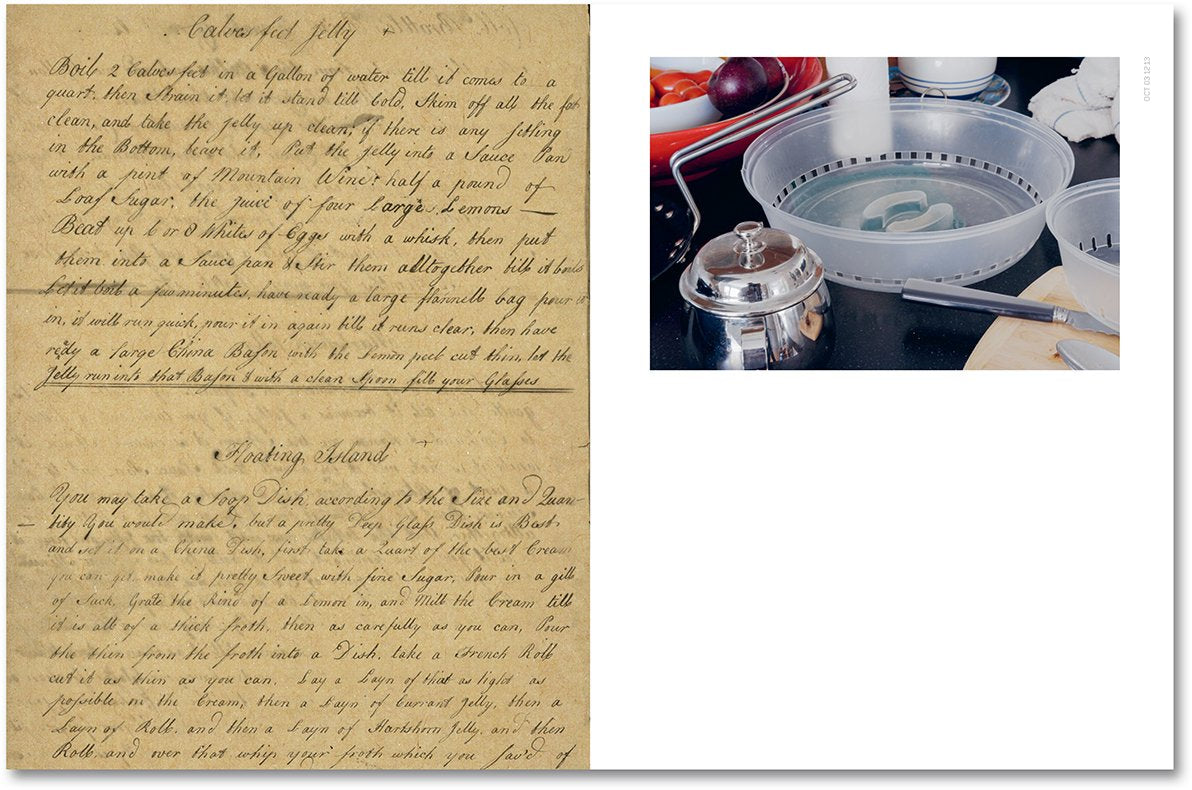 Calves feet Jelly
Boil 2 Calves feet in a Gallon of water till it comes to a
quart, then Strain it, let it stand till Cold, Skim off all the fat
clean, and take the Jelly up clean, if there is any setling
in the Bottom, leave it, Put the Jelly into a Sauce Pan
with a pint of Mountain Wine, half a pound of
Loaf Sugar, the juice of four Large Lemons —
Beat up 6 or 8 Whites of Eggs with a whisk, then put
them into a Sauce pan & Stir them alltogether till it boils
Let it boil a few minutes, have ready a large flannell bag pour it
in, it will run quick, pour it in again till it runs clear, then have
redy a large China Bason with the Lemon peel cut thin, let the
Jelly run into that Bason & with a clean Spoon fill your Glasses
Floating Island
You may take a Soop Dish, according to the Size and Quan-
tity You would make, but a pretty Deep Glass Dish is Best
and set it on a China Dish, first take a Quart of the best Cream
you can get, make it pretty Sweet with fine Sugar, Pour in a gill
of Sack, Grate the Rind of a Lemon in, and Mill the Cream till
it is all of a thick froth, then as carefully as you can, Pour
the thin from the froth into a Dish, take a French Roll
cut it as thin as you can, Lay a Layn of that as light as
possible on the Cream, then a Layn of Currant Jelly, then a
Layn of Roll, and then a Layn of Hartshorn Jelly, and then
Roll, and over that whip your froth which you sav'd of
OCT 03 12:13